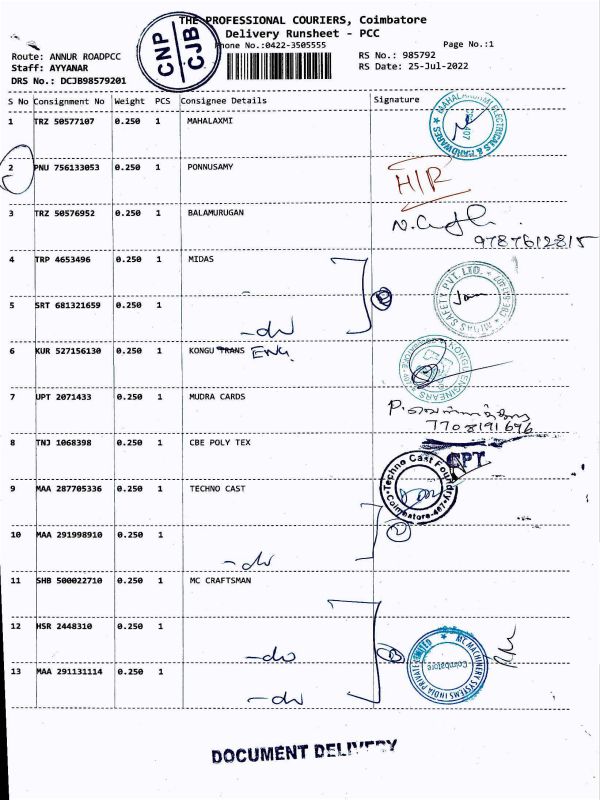 THE PROFESSIONAL COURIERS, Coimbatore
Delivery Runsheet - PCC
CNP
CJB
Phone No.:0422-3505555
Page No.:1
Route: ANNUR ROADPCC
Staff: AYYANAR
DRS No.: DCJB98579201
RS No.: 985792
RS Date: 25-Jul-2022
S No Consignment No Weight PCS Consignee Details Signature
1 TRZ 50577107 0.250 1 MAHALAXMI
2 PNU 756133053 0.250 1 PONNUSAMY H/R
3 TRZ 50576952 0.250 1 BALAMURUGAN
9787612815
4 TRP 4653496 0.250 1 MIDAS
5 SRT 681321659 0.250 1
6 KUR 527156130 0.250 1 KONGU TRANS ENG.
7 UPT 2071433 0.250 1 MUDRA CARDS
7708191696
8 TNJ 1068398 0.250 1 CBE POLY TEX
CPT
9 MAA 287705336 0.250 1 TECHNO CAST
Techno Cast Foundry
Coimbatore-
10 MAA 291998910 0.250 1
11 SHB 500022710 0.250 1 MC CRAFTSMAN
12 HSR 2448310 0.250 1
MT MACHINERY SYSTEMS INDIA PRIVATE LIMITED
Coimbatore
13 MAA 291131114 0.250 1
DOCUMENT DELIVERY